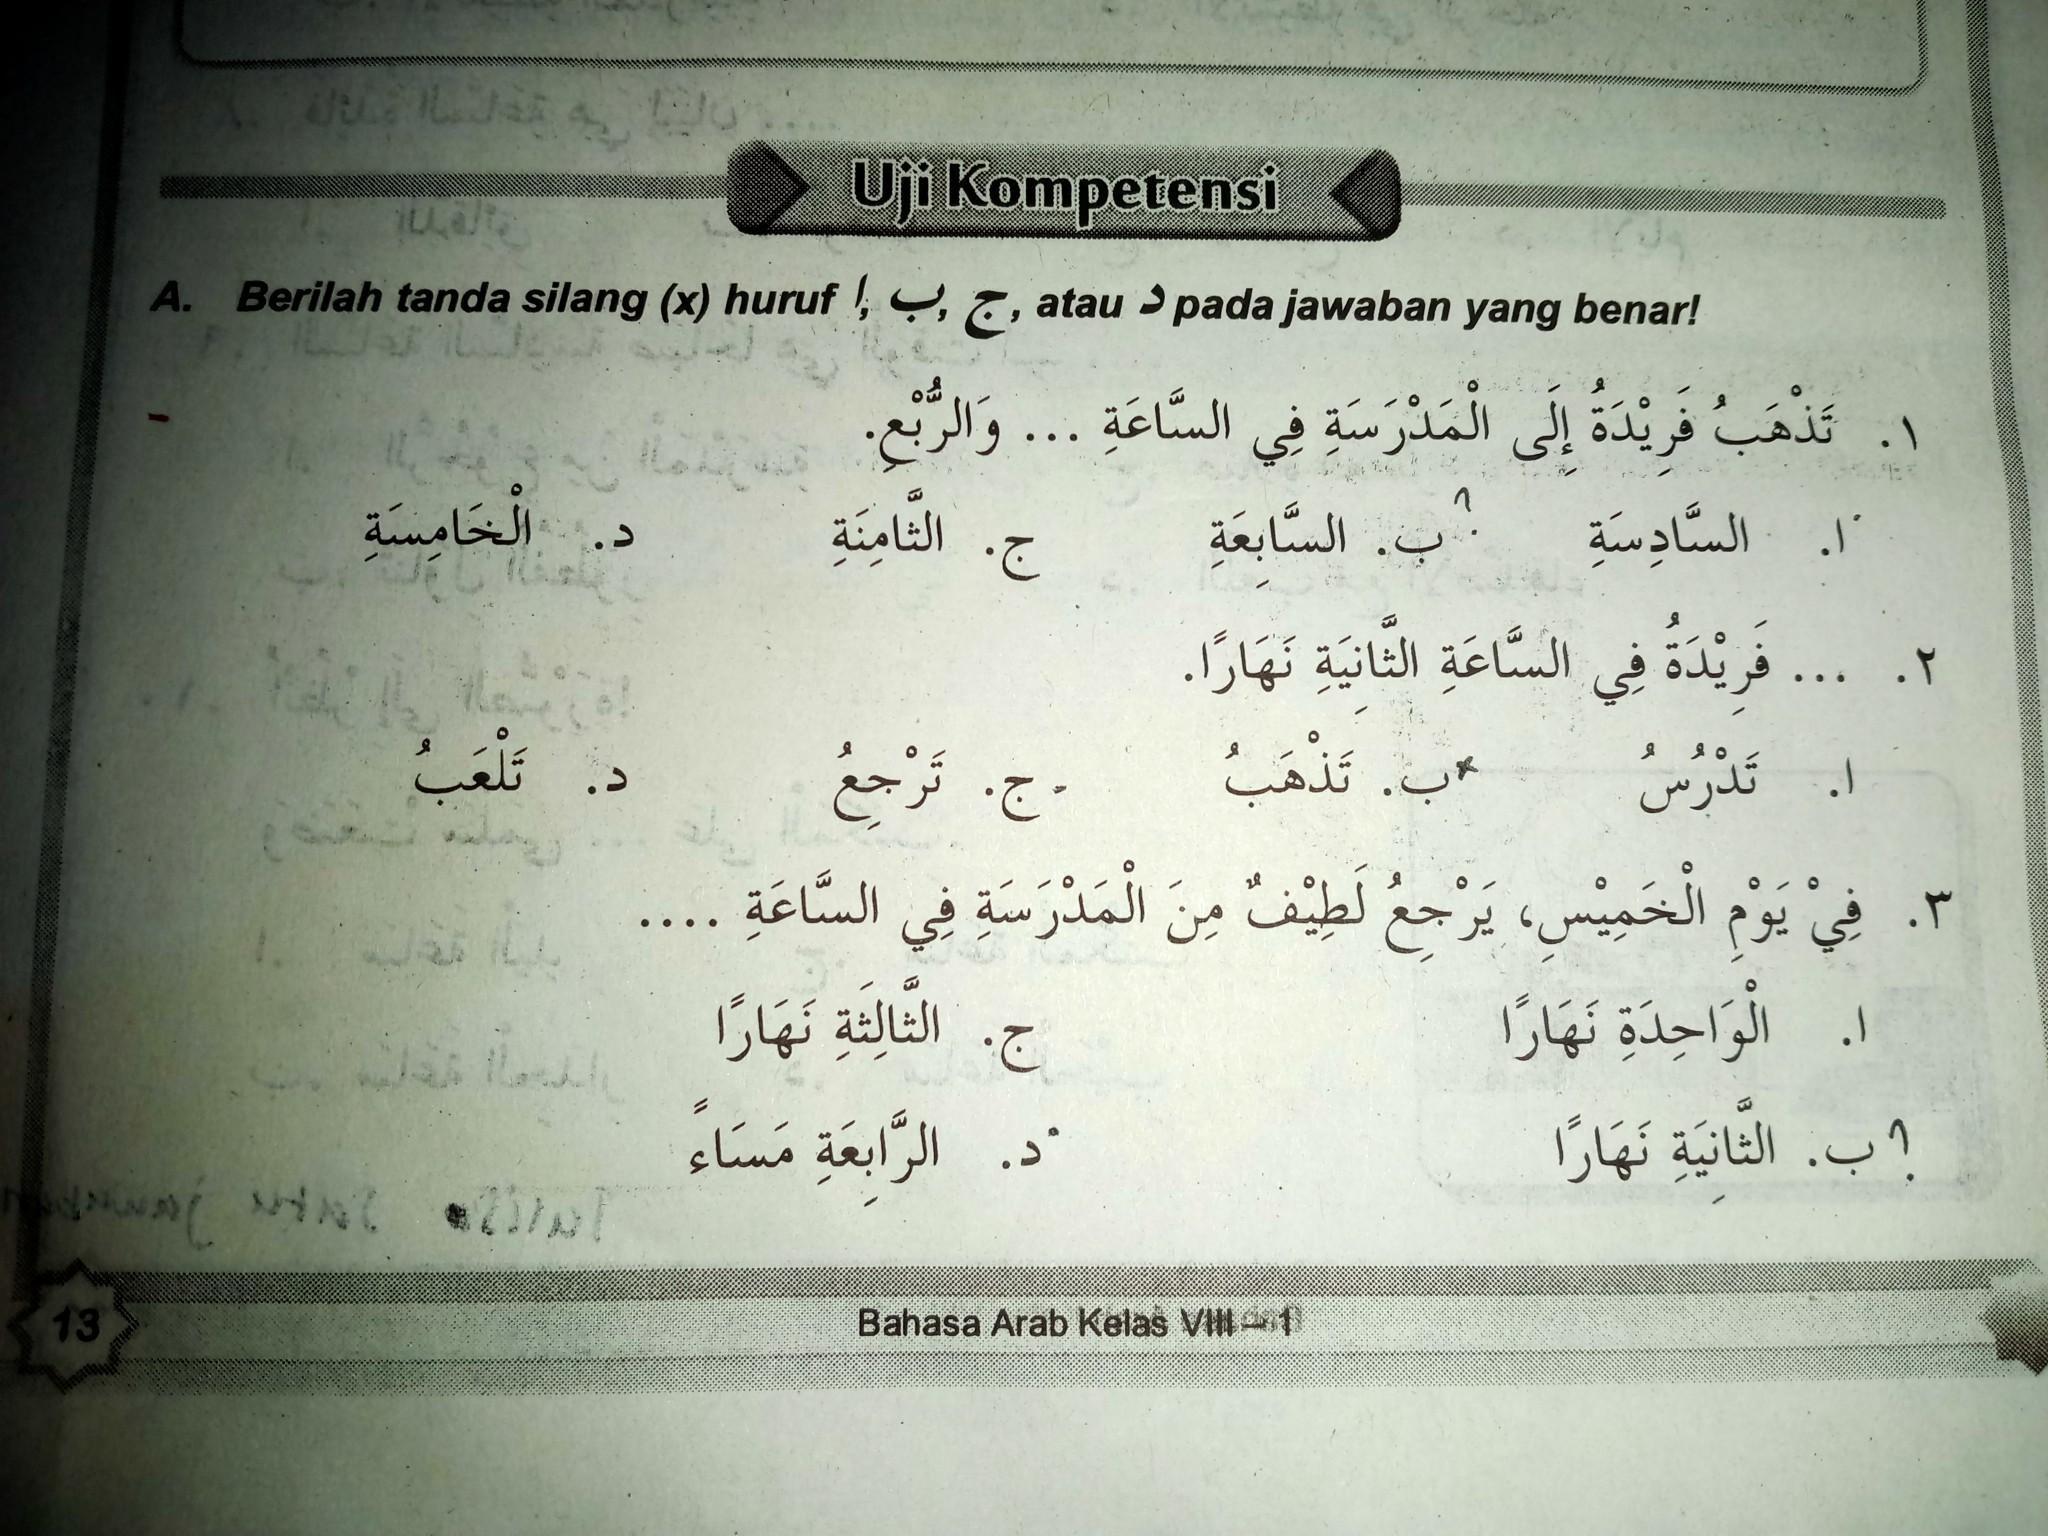 Uji Kompetensi
A. Berilah tanda silang (x) huruf ا, ب, ج, atau د pada jawaban yang benar!
١. تَذْهَبُ فَرِيْدَةُ إِلَى الْمَدْرَسَةِ فِي السَّاعَةِ ... وَالرُّبْعِ.
ا. السَّادِسَةِ ؟ ب. السَّابِعَةِ ج. الثَّامِنَةِ د. الْخَامِسَةِ
٢. ... فَرِيْدَةُ فِي السَّاعَةِ الثَّانِيَةِ نَهَارًا.
ا. تَدْرُسُ × ب. تَذْهَبُ ج. تَرْجِعُ د. تَلْعَبُ
٣. فِيْ يَوْمِ الْخَمِيْسِ، يَرْجِعُ لَطِيْفٌ مِنَ الْمَدْرَسَةِ فِي السَّاعَةِ ....
ا. الْوَاحِدَةِ نَهَارًا ج. الثَّالِثَةِ نَهَارًا
؟ ب. الثَّانِيَةِ نَهَارًا د. الرَّابِعَةِ مَسَاءً
13 Bahasa Arab Kelas VIII – 1